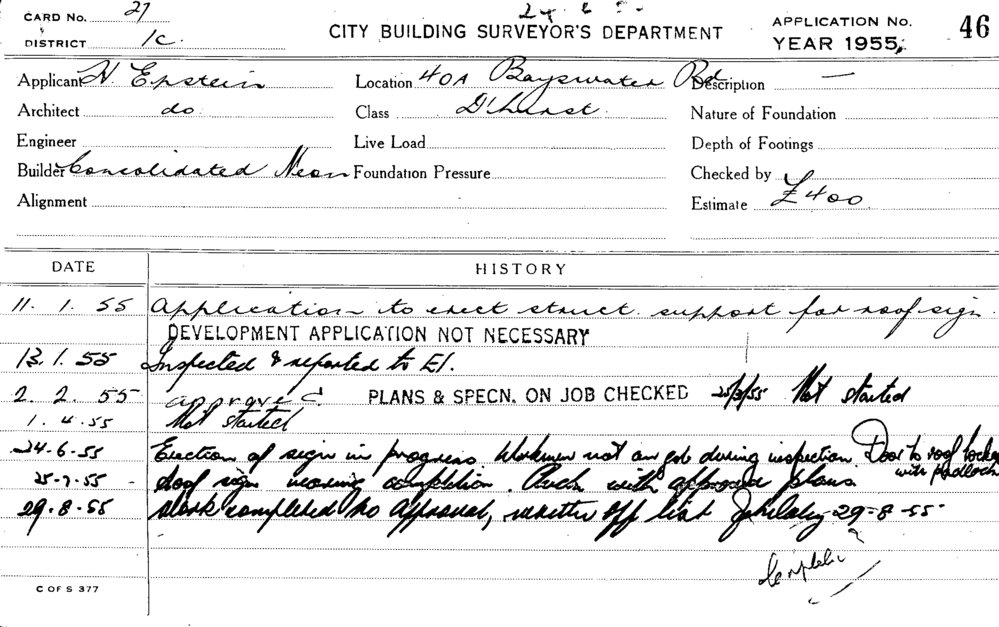 CARD No. 27
CITY BUILDING SURVEYOR'S DEPARTMENT
APPLICATION No. 46
DISTRICT 1c
YEAR 1955
Applicant H. Epstein Location 40A Bayswater Rd Description —
Architect do. Class D'hurst. Nature of Foundation
Engineer Live Load Depth of Footings
Builder Consolidated Neon Foundation Pressure Checked by
Alignment Estimate £400
DATE HISTORY
11. 1. 55 Application to erect struct. support for roof sign.
DEVELOPMENT APPLICATION NOT NECESSARY
13. 1. 55 Inspected & reported to E1.
2. 2. 55 approved. PLANS & SPECN. ON JOB CHECKED 25/3/55 Not started
1. 4. 55 Not started
24-6-55 Erection of sign in progress. Workmen not on job during inspection. Door to roof locked with padlock.
25-7-55 Roof sign nearing completion. with approved plans
29-8-55 Work completed to Approval, off list 29-8-55
Complete
C OF S 377